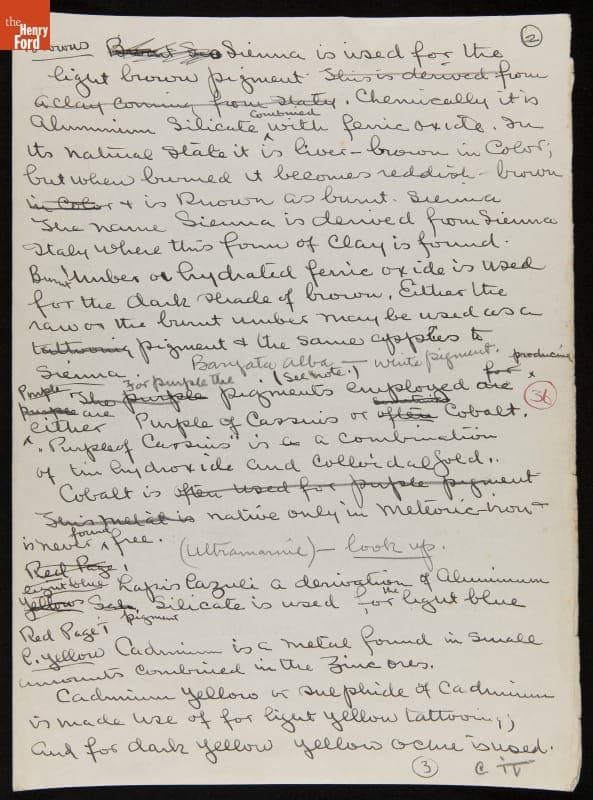 the
Henry
Ford
2
Browns Burnt Sie Sienna is used for the
light brown pigment. This is derived from
a clay coming from Italy. Chemically it is
Combined
Aluminium Silicate with ferric oxide. In
its natural state it is liver-brown in Color;
but when burned it becomes reddish-brown
in Color & is known as burnt. Sienna
The name Sienna is derived from Sienna
Italy where this form of Clay is found.
Burnt Umber or hydrated ferric oxide is used
for the dark shade of brown. Either the
raw or the burnt umber may be used as a
tattooing pigment & the same applies to
Sienna. Baryata alba — white pigment.
(See note.)
Purple for purple the for producing
The purple pigments employed are
36
purple are
either Purple of Cassius or often Cobalt.
"Purple of Cassius" is as a combination
of tin hydroxide and colloidal Gold.
Cobalt is often used for purple pigment
This metal is native only in meteoric-iron &
found
is never free.
(Ultramarine) — look up.
Red Page
light blue Lapis lazuli a derivation of Aluminum
yellows Silicate is used for the light blue
pigment
Red Page
l. yellow Cadmium is a metal found in small
amounts combined in the Zinc ores.
Cadmium Yellow or sulphide of Cadmium
is made use of for light yellow tattooing;
and for dark yellow yellow ochre is used.
3